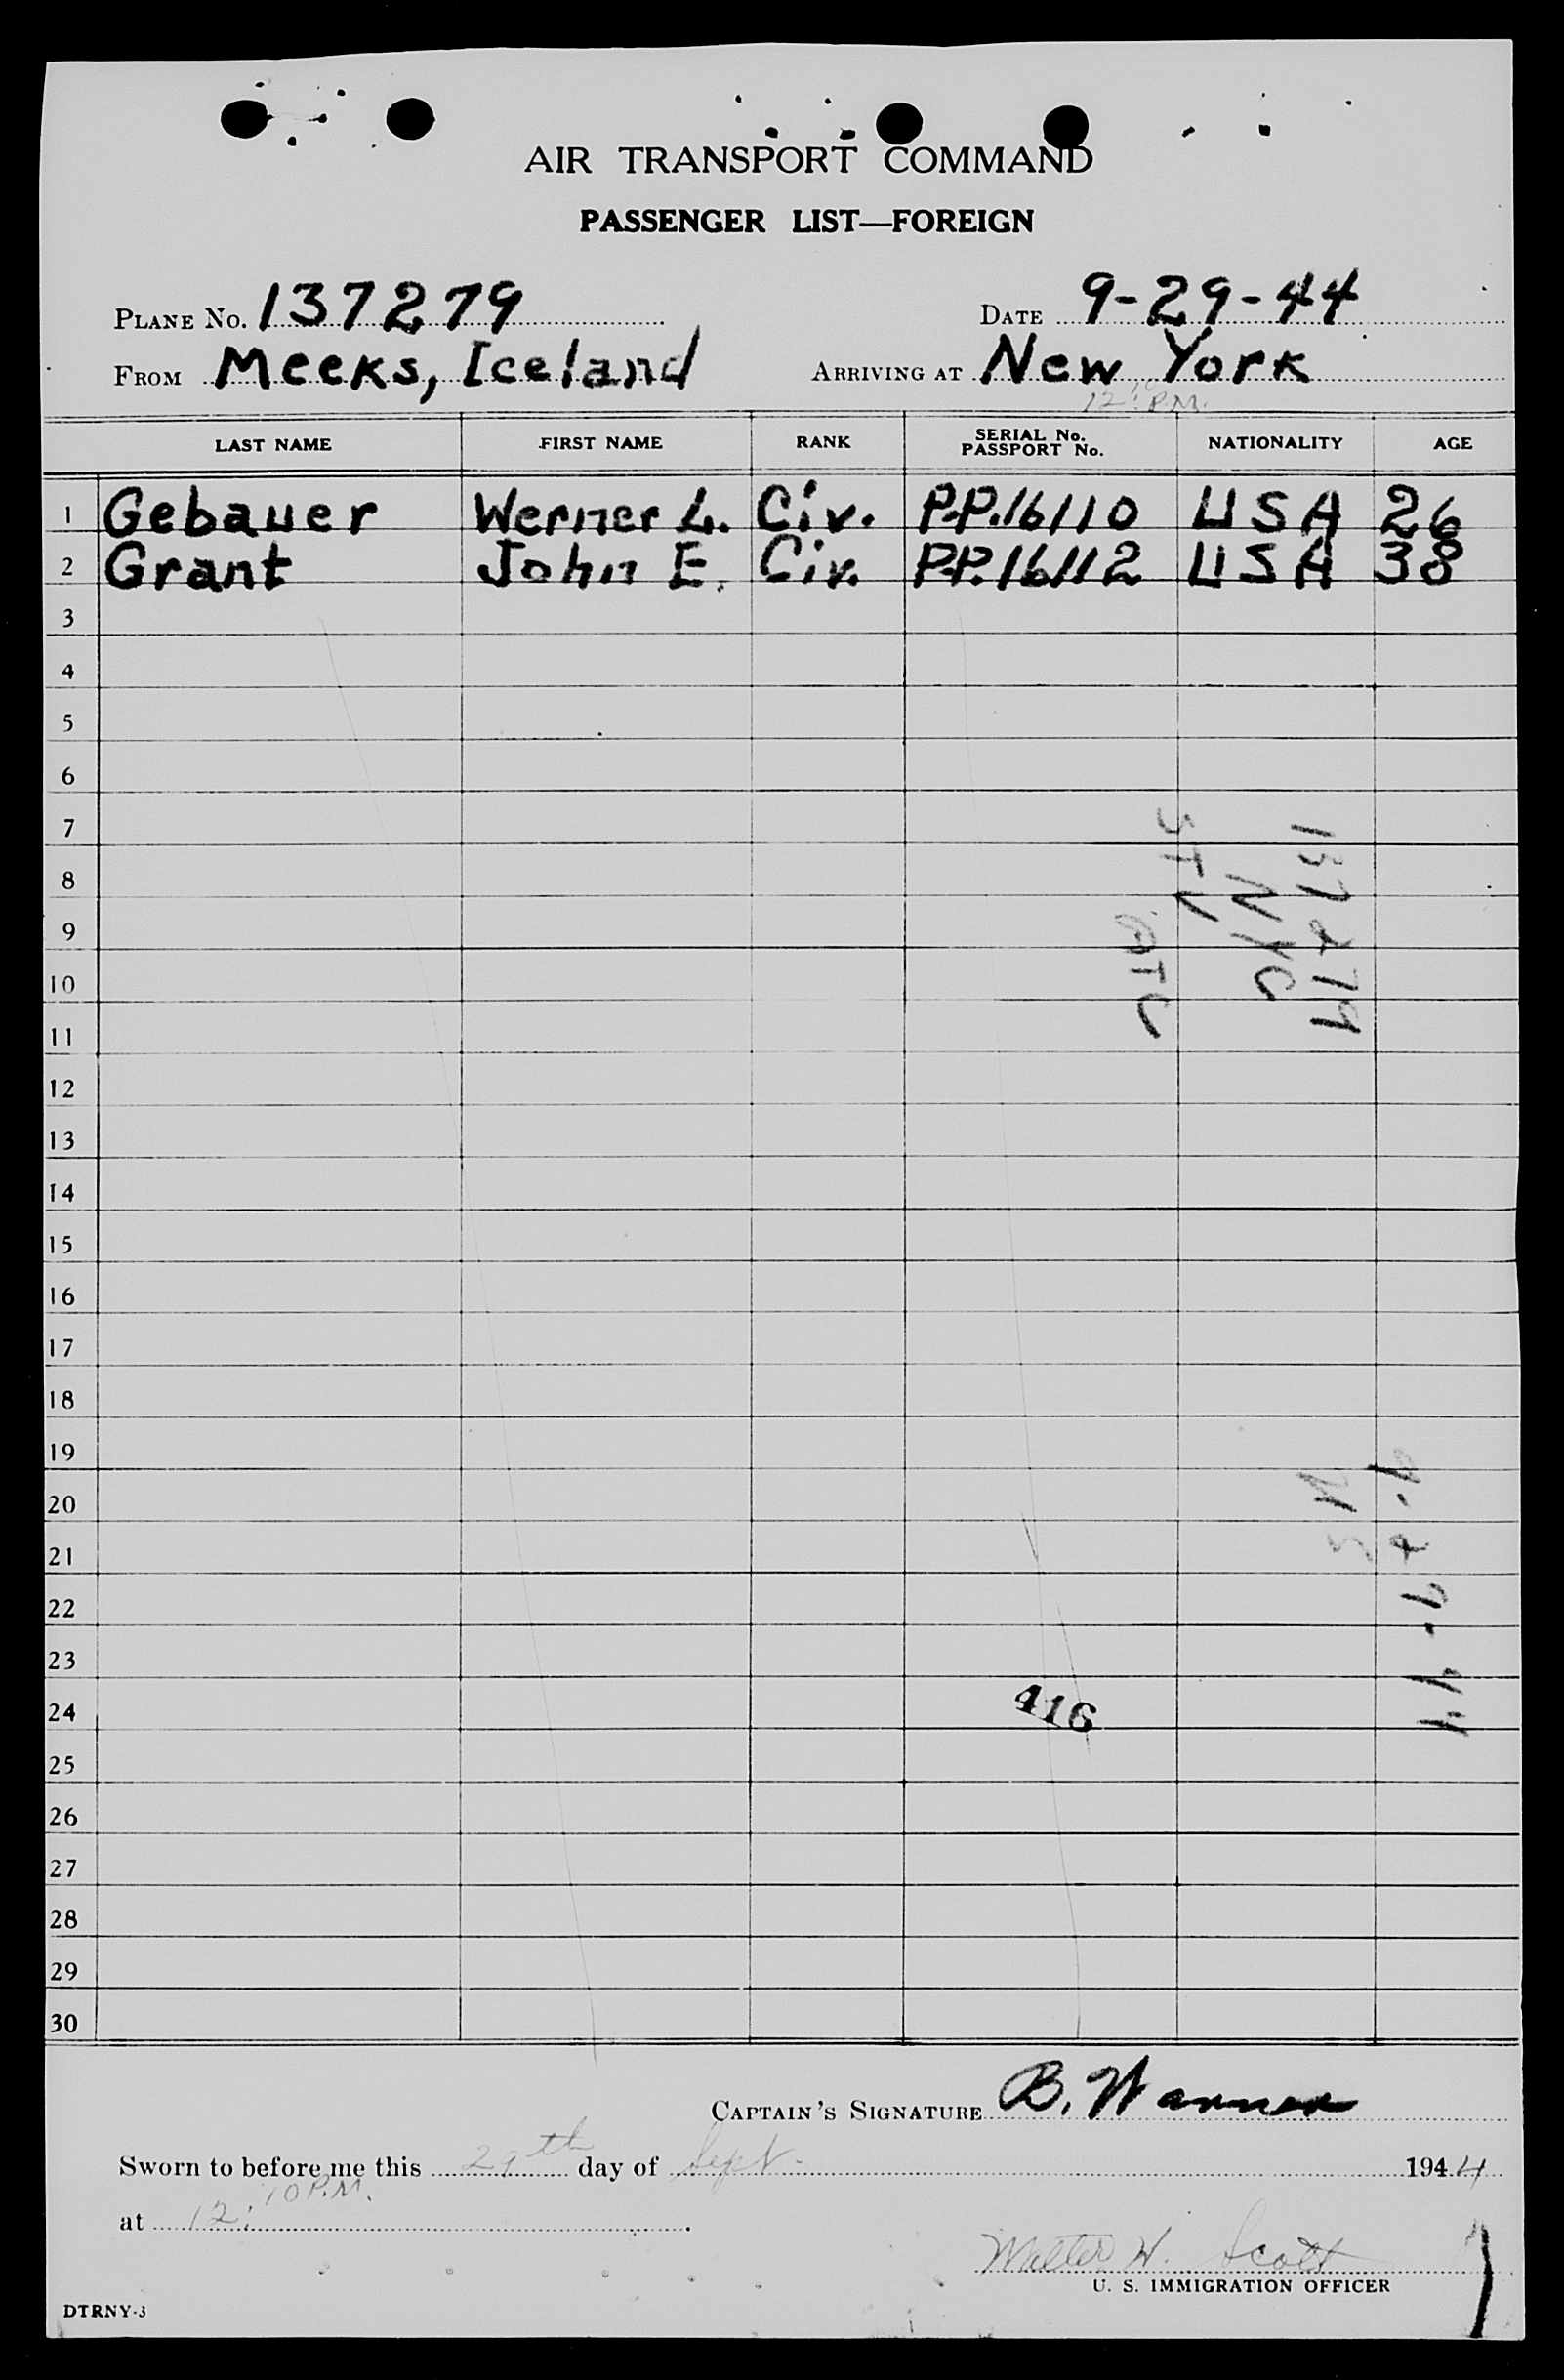 AIR TRANSPORT COMMAND
PASSENGER LIST—FOREIGN
PLANE No. 137279 DATE 9-29-44
FROM Meeks, Iceland ARRIVING AT New York
12:10 P.M.
LAST NAME FIRST NAME RANK SERIAL No. PASSPORT No. NATIONALITY AGE
1 Gebauer Werner L. Civ. P.P. 16110 USA 26
2 Grant John E. Civ. P.P. 16112 USA 38
3
4
5
6
7
8
9
10
11
12
13
14
15
16
17
18
19
20
21
22
23
24
25
26
27
28
29
30
137279
NYC
STV
GTC
9-29-44
416
CAPTAIN'S SIGNATURE B. Warner
Sworn to before me this 29th day of Sept. 1944
at 12:10 P.M.
Walter W. Scott
U. S. IMMIGRATION OFFICER
DTRNY-3